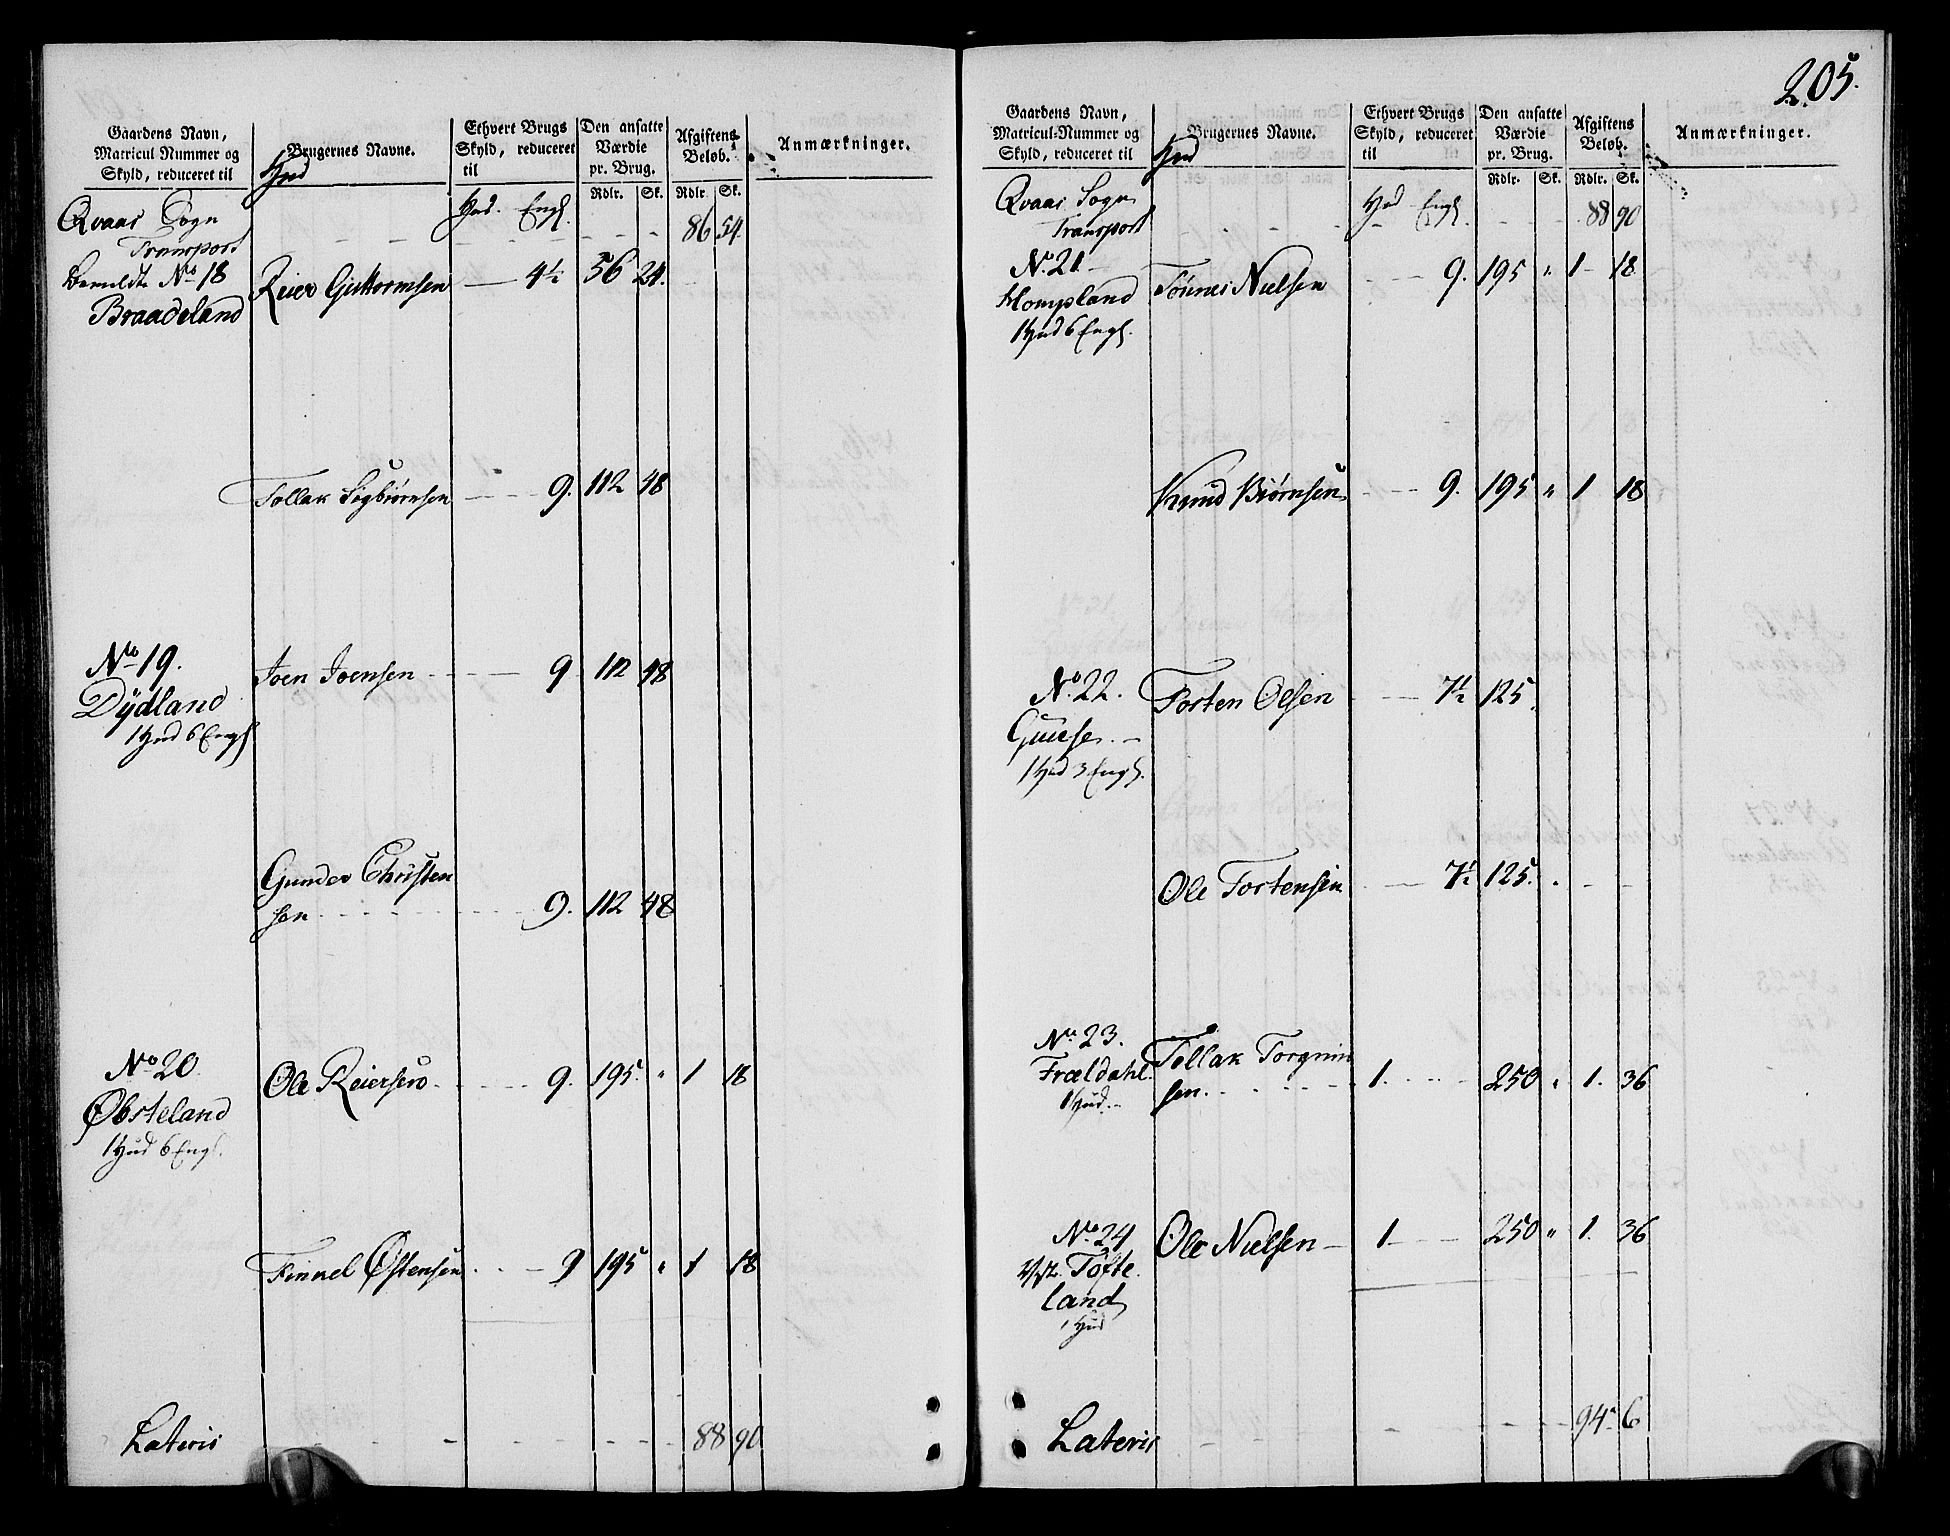 Gaardens Navn,
Matricul Nummer og
Skyld, reduceret til
Hud
Brugernes Navne.
Ethvert Brugs
Skyld, reduceret
til
Den ansatte
Værdie
pr. Brug.
Rdlr. Sk.
Afgiftens
Beløb.
Rdlr. Sk.
Anmærkninger.
Qvaas Sogn Hud. Engl.
Transport 86 54.
No 18 Reier Guttormsen 4½ 56 24.
Braadeland
Tollak Sigbiørnsen 9. 112 48
No 19. Joen Joensen 9 112 48
Dÿdland
1 Hud 6 Engl
Gunder Christen
sen 9. 112 48
No 20. Ole Reiersen 9. 195. " 1 18
Øbsteland
1 Hud 6 Engl.
Finkel Østensen 9 195 " 1 18
Lateris 88 90
205.
Gaardens Navn,
Matricul-Nummer og
Skyld, reduceret til
Hud
Brugernes Navne.
Ethvert Brugs
Skyld, reduceret
til
Den ansatte
Værdie
pr. Brug.
Rdlr. Sk.
Afgiftens
Beløb.
Rdlr. Sk.
Anmærkninger.
Qvaas Sogn Hud Engl.
Transport 88 90
No. 21 Tönnes Nielsen 9. 195 " 1 18
Hompland
1 Hud 6 Engl.
Knud Biørnsen 9. 195 " 1 18
No. 22. Torten Olsen 7½ 125.
1 Hud 3 Engl.
Ole Tortensen 7½ 125.
No 23. Tollak Torgrim
Træeldahl sen. 1. 250 " 1. 36
1 Hud.
No 24 Ole Nielsen 1 250 " 1. 36
Tofte
land
1 Hud
Lateris 94 6